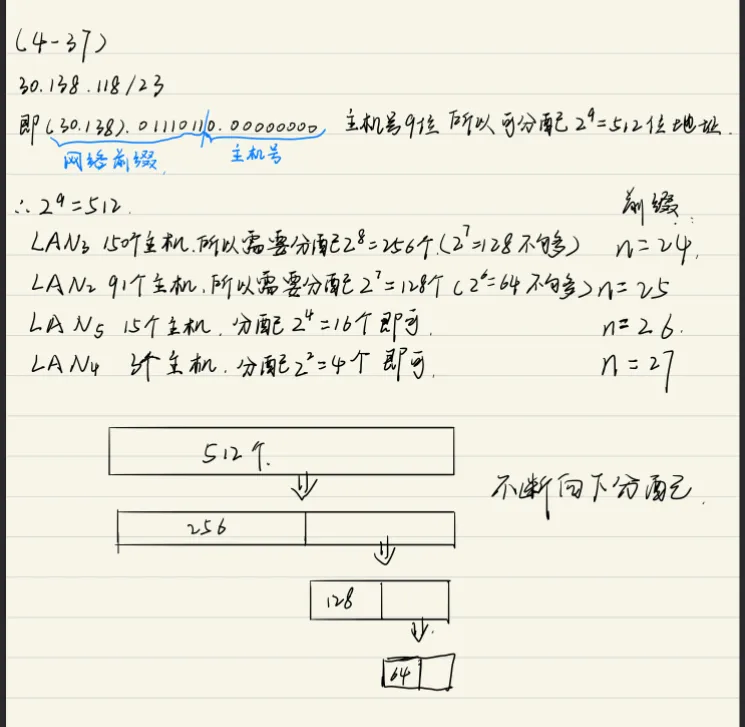 (4-37)
30.138.118/23
即(30.138).01110110.00000000 主机号9位 所以可分配2⁹=512位地址.
网络前缀 主机号
∴2⁹=512. 前缀:
LAN3 150个主机.所以需要分配2⁸=256个(2⁷=128不够) n=24.
LAN2 91个主机.所以需要分配2⁷=128个(2⁶=64不够) n=25
LAN5 15个主机.分配2⁴=16个即可. n=26.
LAN4 3个主机.分配2²=4个即可. n=27
512个.
不断向下分配.
256
128
64